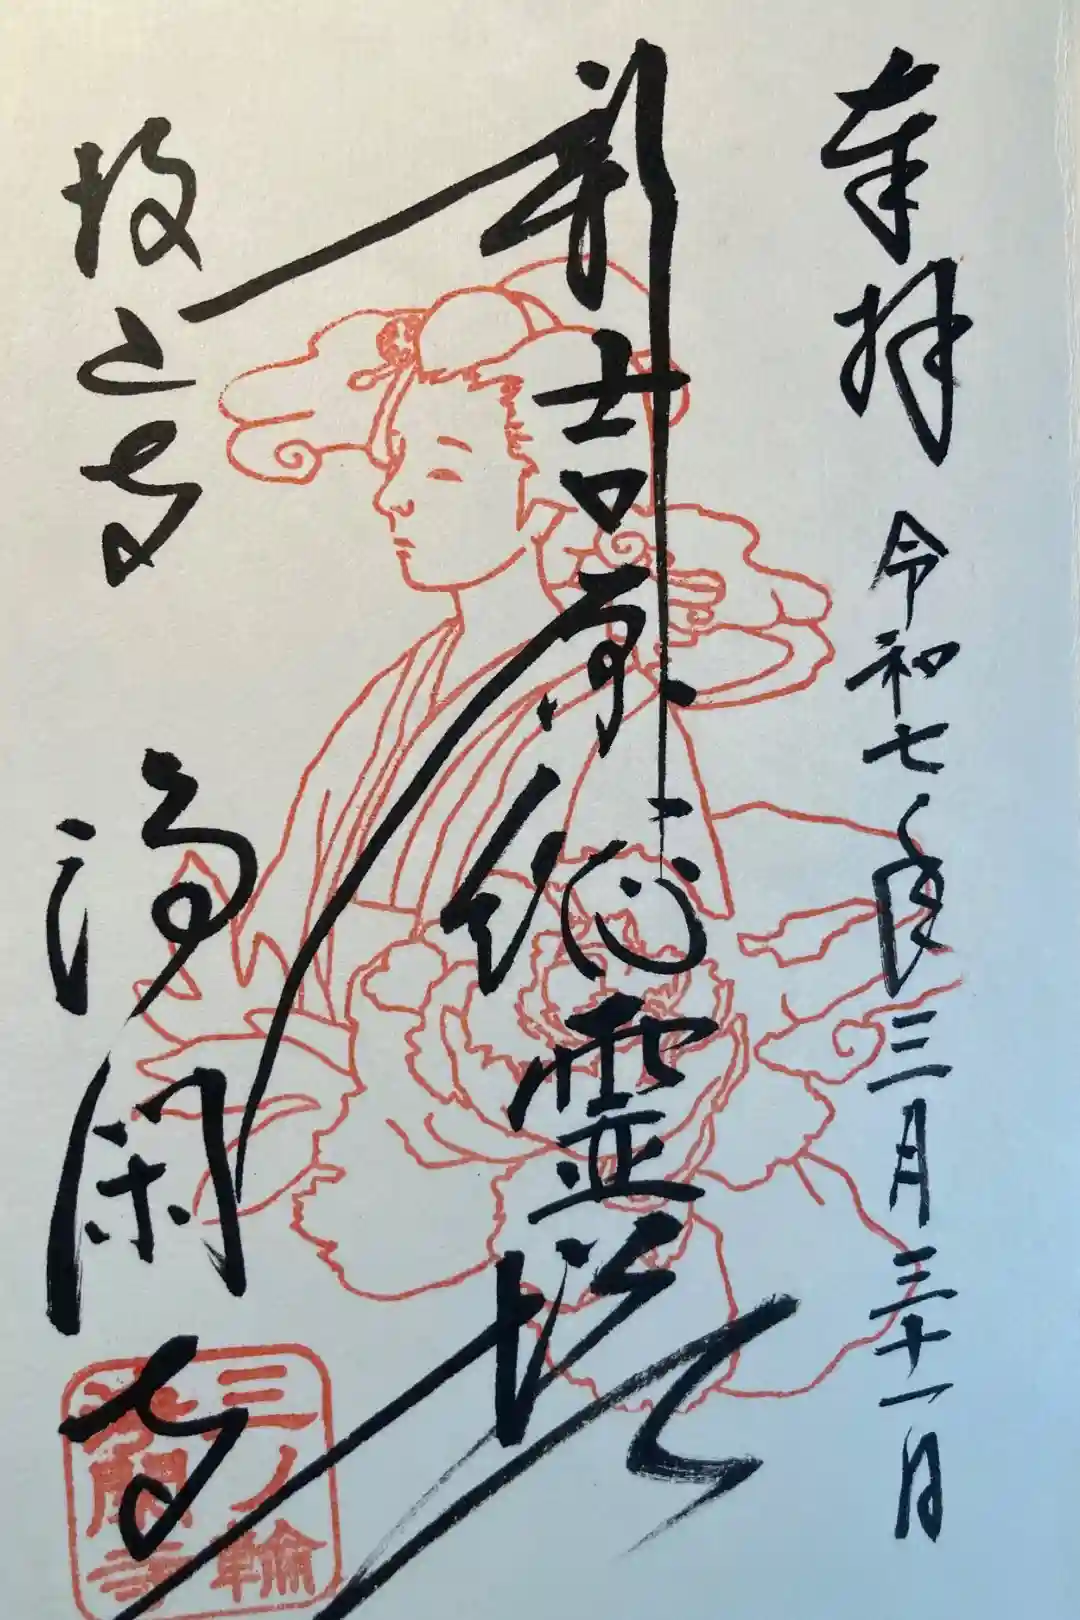 奉拝
令和七年三月三十一日
新吉原総霊塔
投込寺
浄閑寺
三ノ輪
浄閑寺